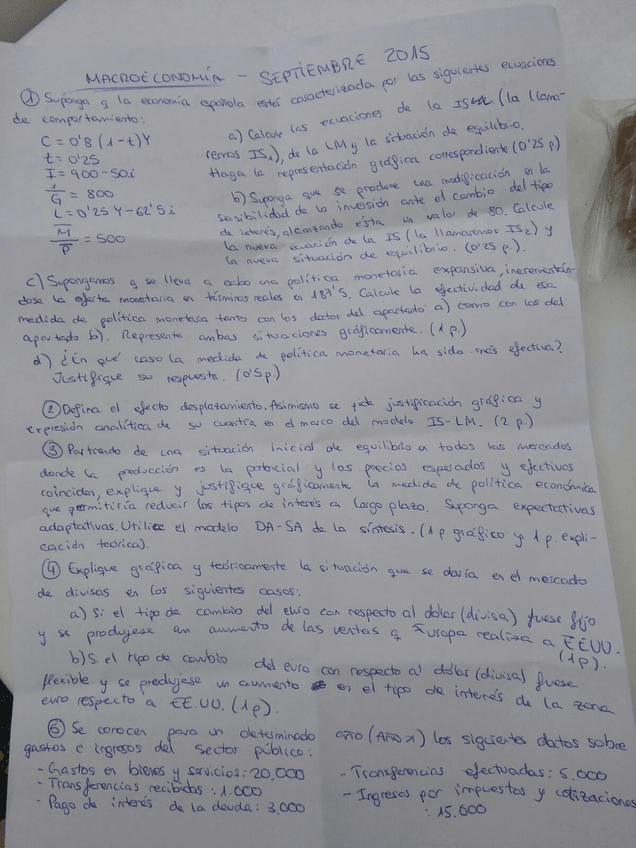 MACROECONOMÍA - SEPTIEMBRE 2015
① Suponga q la economía española está caracterizada por las siguientes ecuaciones
de comportamiento:
C = 0'8 (1-t)Y
t = 0'25
I = 900 - 50i
G = 800
L = 0'25 Y - 62'5 i
M/P = 500
a) Calcule las ecuaciones de la IS (la llama-
remos IS₁), de la LM y la situación de equilibrio.
Haga la representación gráfica correspondiente (0'25 p)
b) Suponga que se produce una modificación en la
sensibilidad de la inversión ante el cambio del tipo
de interés, alcanzando ésta un valor de 80. Calcule
la nueva ecuación de la IS (la llamaremos IS₂) y
la nueva situación de equilibrio. (0'25 p.).
c) Supongamos q se lleva a cabo una política monetaria expansiva, incrementán-
dose la oferta monetaria en términos reales en 187'5. Calcule la efectividad de esa
medida de política monetaria tanto con los datos del apartado a) como con los del
apartado b). Represente ambas situaciones gráficamente. (1 p.)
d) ¿En qué caso la medida de política monetaria ha sido más efectiva?
Justifique su respuesta. (0'5 p.)
② Defina el efecto desplazamiento. Asimismo se pide justificación gráfica y
expresión analítica de su cuantía en el marco del modelo IS-LM. (2 p.)
③ Partiendo de una situación inicial de equilibrio en todos los mercados
donde la producción es la potencial y los precios esperados y efectivos
coinciden, explique y justifique gráficamente la medida de política económica
que permitiría reducir los tipos de interés a largo plazo. Suponga expectativas
adaptativas. Utilize el modelo DA-SA de la síntesis. (1 p. gráfico y 1 p. expli-
cación teórica).
④ Explique gráfica y teóricamente la situación que se daría en el mercado
de divisas en los siguientes casos:
a) Si el tipo de cambio del euro con respecto al dólar (divisa) fuese fijo
y se produjese un aumento de las ventas q Europa realiza a EEUU.
(1p).
b) Si el tipo de cambio del euro con respecto al dólar (divisa) fuese
flexible y se produjese un aumento en el tipo de interés de la zona
euro respecto a EE.UU. (1p).
⑤ Se conocen para un determinado año (Año x) los siguientes datos sobre
gastos e ingresos del sector público:
- Gastos en bienes y servicios: 20.000
- Transferencias recibidas: 1.000
- Pago de interés de la deuda: 3.000
- Transferencias efectuadas: 5.000
- Ingresos por impuestos y cotizaciones
: 15.000